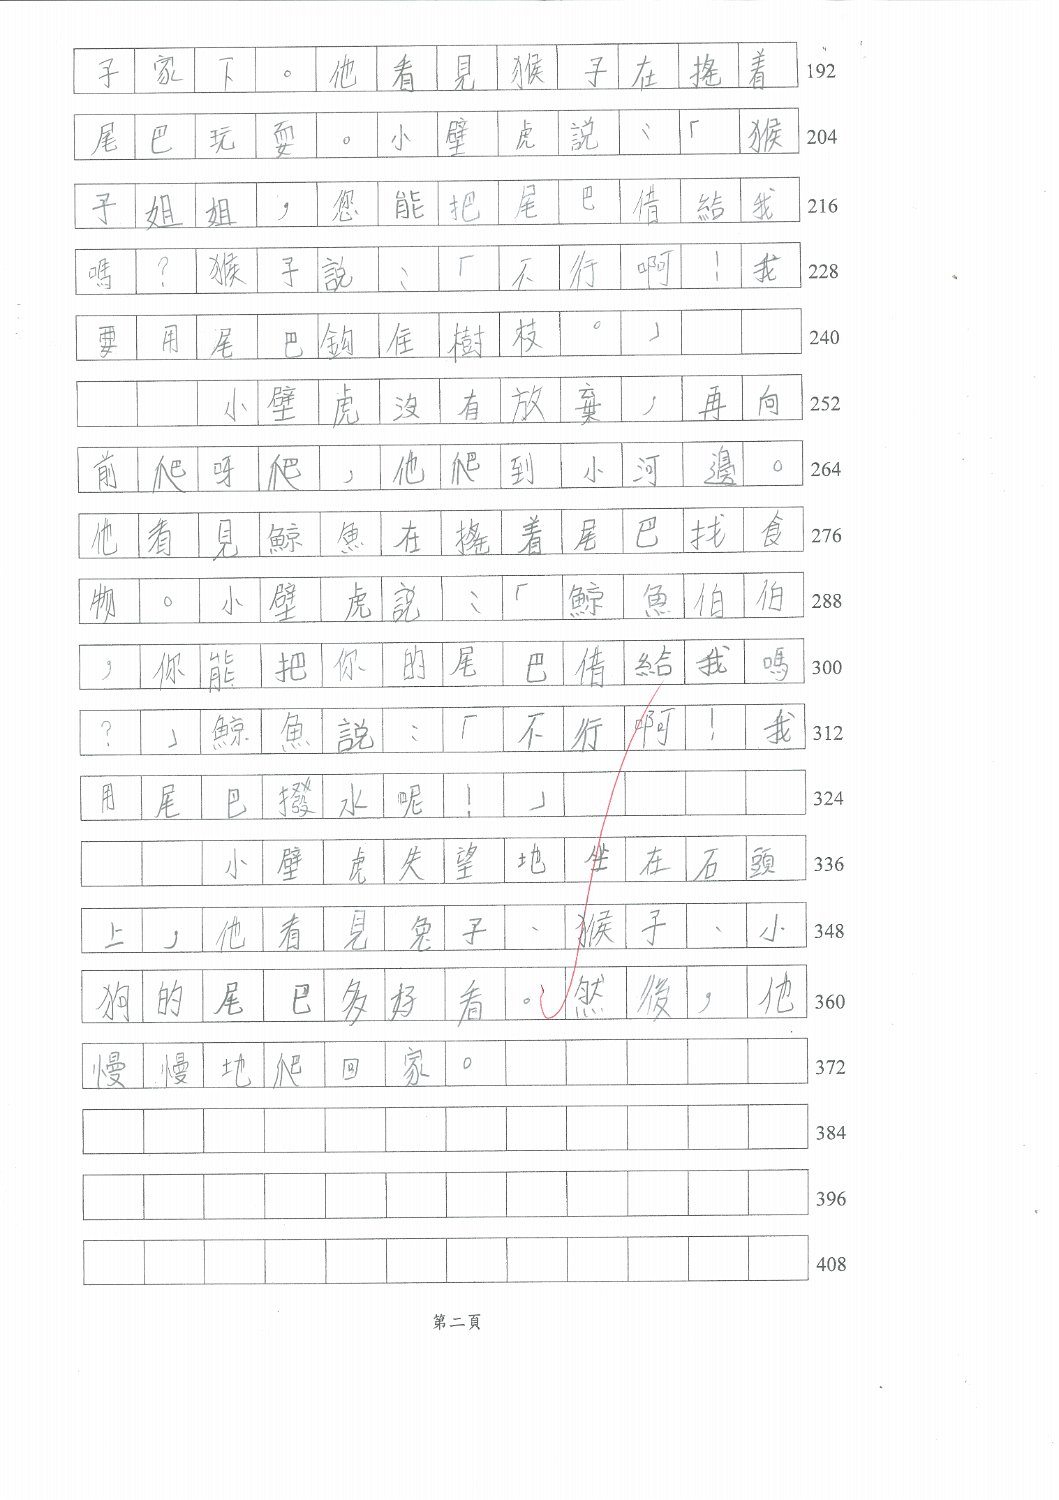 子家下。他看見猴子在搖着 192
尾巴玩耍。小壁虎說：「猴 204
子姐姐，您能把尾巴借給我 216
嗎？猴子說：「不行啊！我 228
要用尾巴鈎住樹枝。」 240
小壁虎沒有放棄，再向 252
前爬呀爬，他爬到小河邊。 264
他看見鯨魚在搖着尾巴找食 276
物。小壁虎說：「鯨魚伯伯 288
，你能把你的尾巴借給我嗎 300
？」鯨魚說：「不行啊！我 312
用尾巴撥水呢！」 324
小壁虎失望地坐在石頭 336
上，他看見兔子、猴子、小 348
狗的尾巴多好看。然後，他 360
慢慢地爬回家。 372
384
396
408
第二頁